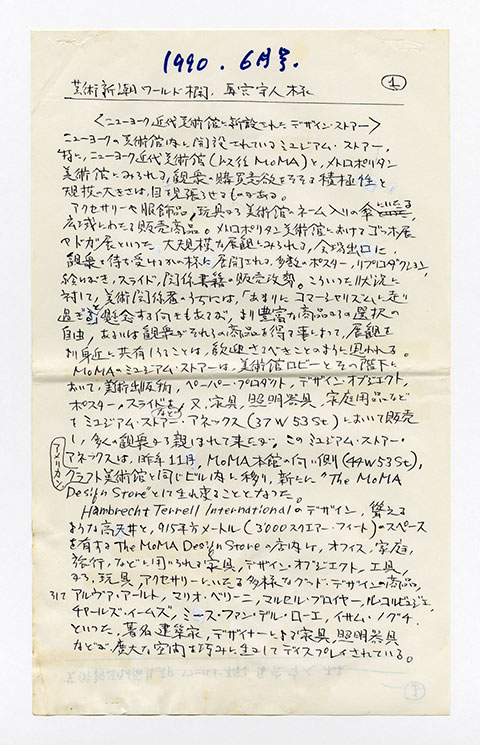 1990. 6月号.
①
芸術新潮ワールド欄. 真宮守人様
<ニューヨーク近代美術館に新設されたデザイン・ストアー>
ニューヨークの美術館内に開設されているミュジアム・ストアー,
特に, ニューヨーク近代美術館(以後MoMA)と, メトロポリタン
美術館にみられる, 観衆の購買意欲をそそる積極性と
規模の大きさは, 目を見張るものがある。
アクセサリーや服飾品, 玩具から美術館ネーム入りの傘にいたる
広域にわたる販売商品。メトロポリタン美術館におけるゴッホ展
やドガ展といった大規模な展観にみられる, 会場出口に,
観衆を待ち受けるかの様に展開される, 多数のポスター, リプロダクション,
絵はがき, スライド, 関係書籍の販売攻勢。こういった状況に
対して, 美術関係者のうちには,「あまりにコマーシャリズムに走り
過ぎると懸念する向きもあるが, より豊富な商品からの選択の
自由, あるいは観衆がそれらの商品を得る事によって, 展観を
より身近に共有しうることは, 歓迎さるべきことのように思われる。
MoMAのミュジアム・ストアーは, 美術館ロビーとその階下に
おいて, 美術出版物, ペーパー・プロダクト, デザイン・オブジェクト,
ポスター, スライドなどを, 又, 家具, 照明器具, 家庭用品など
をミュジアム・ストアー・アネックス(37W53St)において販売
し, 多くの観衆から親しまれて来たが, このミュジアム・ストアー・
アネックスは, 昨年11月, MoMA本館の向い側(44W53St),
アメリカン
クラフト美術館と同じビル内に移り, 新たに"The MoMA
Design Store"として生れ変ることとなった。
Hambrecht Terrell Internationalのデザイン, 聳える
ような高天井と, 915平方メートル(3'000スクエアー・フィート)のスペース
を有するThe MoMA Design Storeの店内は, オフィス, 家庭,
旅行, などに用いられる家具, デザイン・オブジェクト, 工具,
から, 玩具, アクセサリーにいたる多様なグッド・デザインの商品,
アルヴァ・アールト, マリオ・ベリーニ, マルセル・ブロイヤー, ル・コルビジェ,
チャールズ・イームズ, ミース・ファン・デル・ローエ, イサム・ノグチ,
といった, 著名建築家, デザイナーによる家具, 照明器具
などが, 広大な空間を巧みに生かしてディスプレイされている。